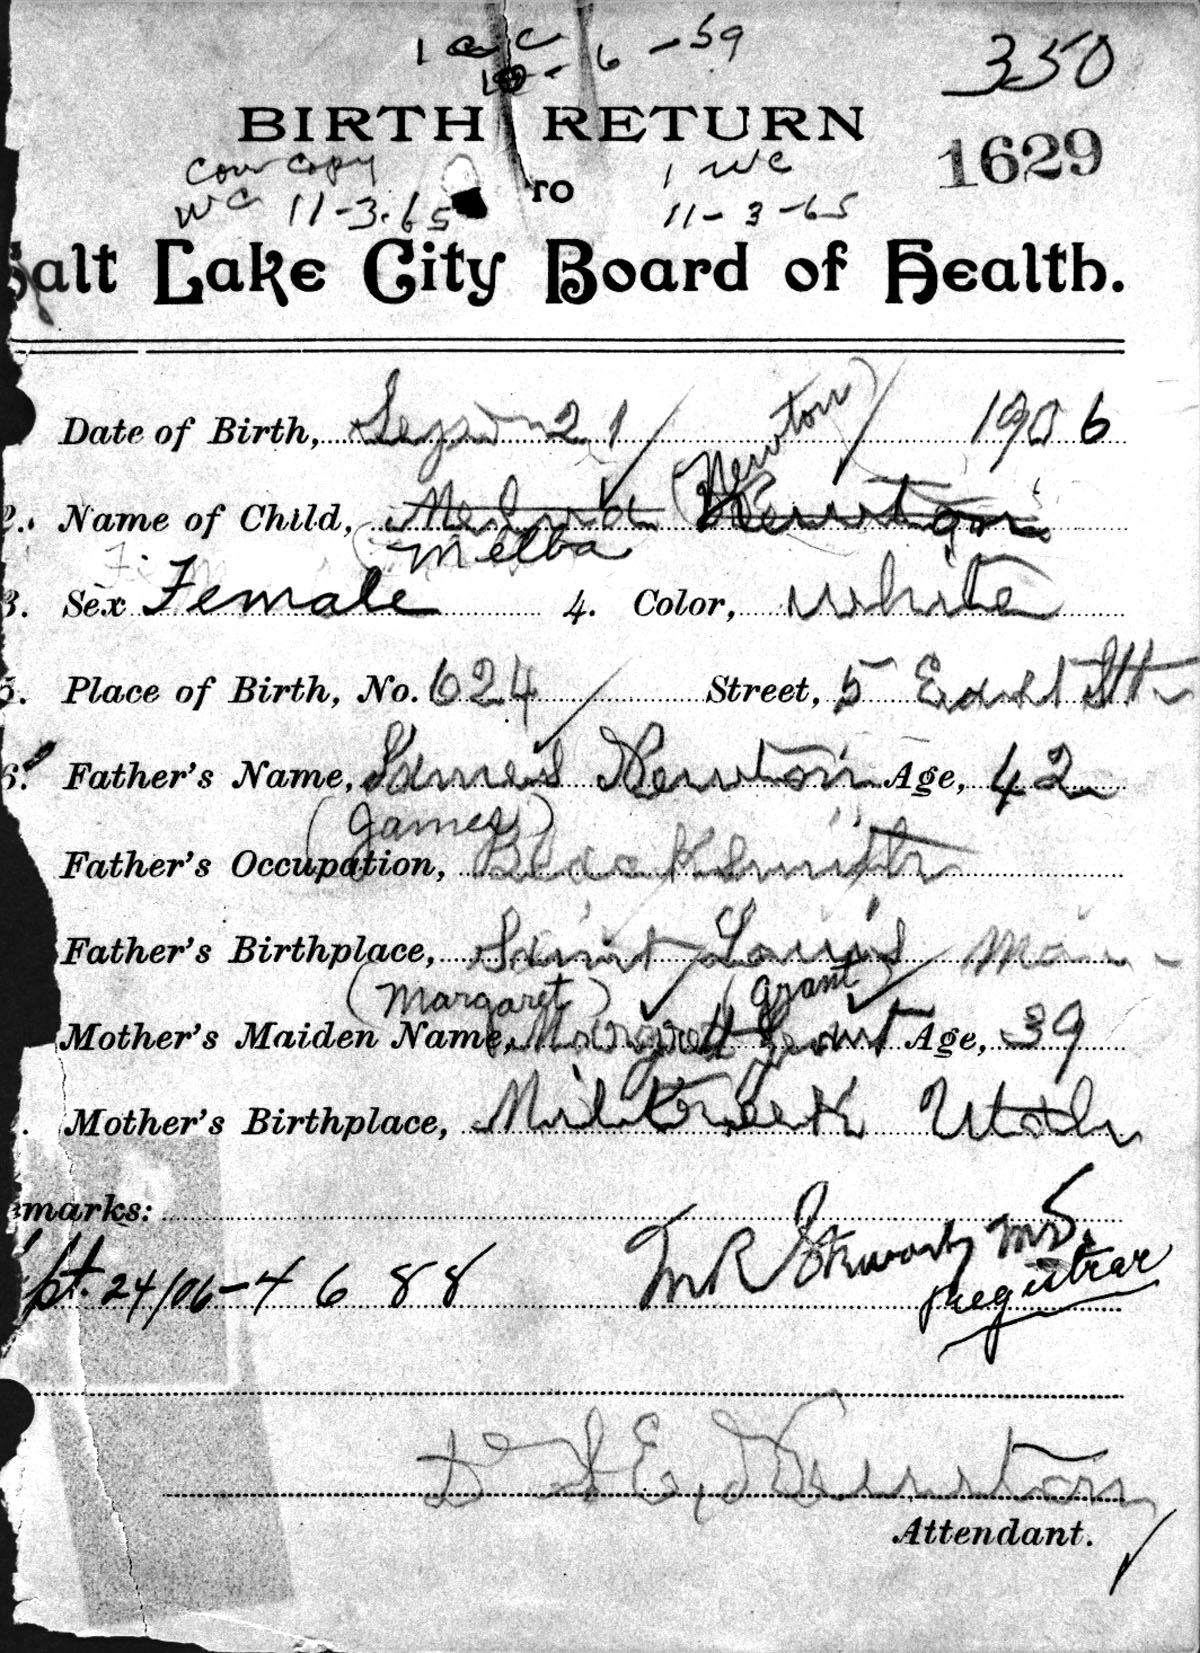 1 c c
10-6-59
350
BIRTH RETURN
1629
Cow copy
WC 11-3-65
TO
1 WC
11-3-65
Salt Lake City Board of Health.
Date of Birth, 21 1906
(Newton)
2. Name of Child, Newton
Melba
3. Sex Female 4. Color, White
5. Place of Birth, No. 624 Street, 5 East
6. Father's Name, James Newton Age, 42
(James)
Father's Occupation, Blacksmith
Father's Birthplace, Saint Louis
(Margaret) (Grant)
Mother's Maiden Name, Margret Grant Age, 39
Mother's Birthplace, Mill Creek Utah
emarks:
pt. 24/06-4688 M.D.
Registrar
Attendant.